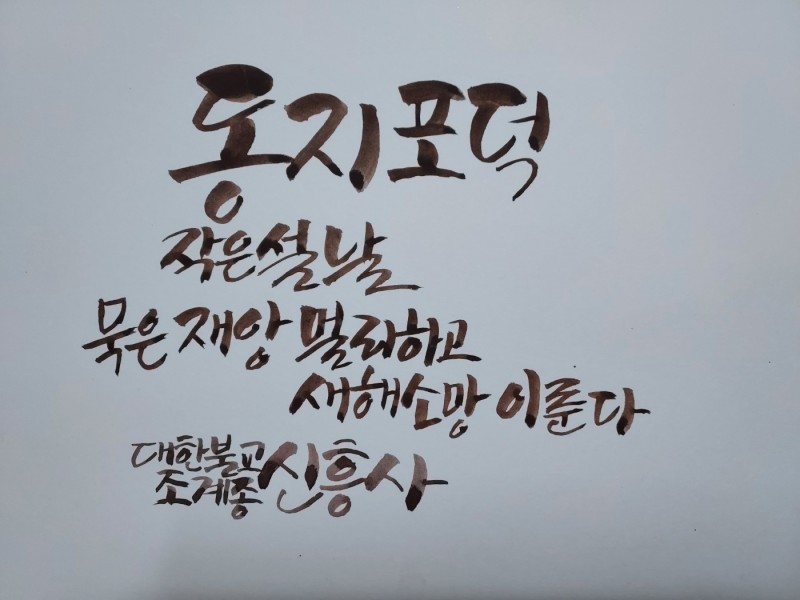 동지포덕
작은설날
묵은 재앙 멀리하고
새해소망 이룬다
대한불교
조계종 신흥사